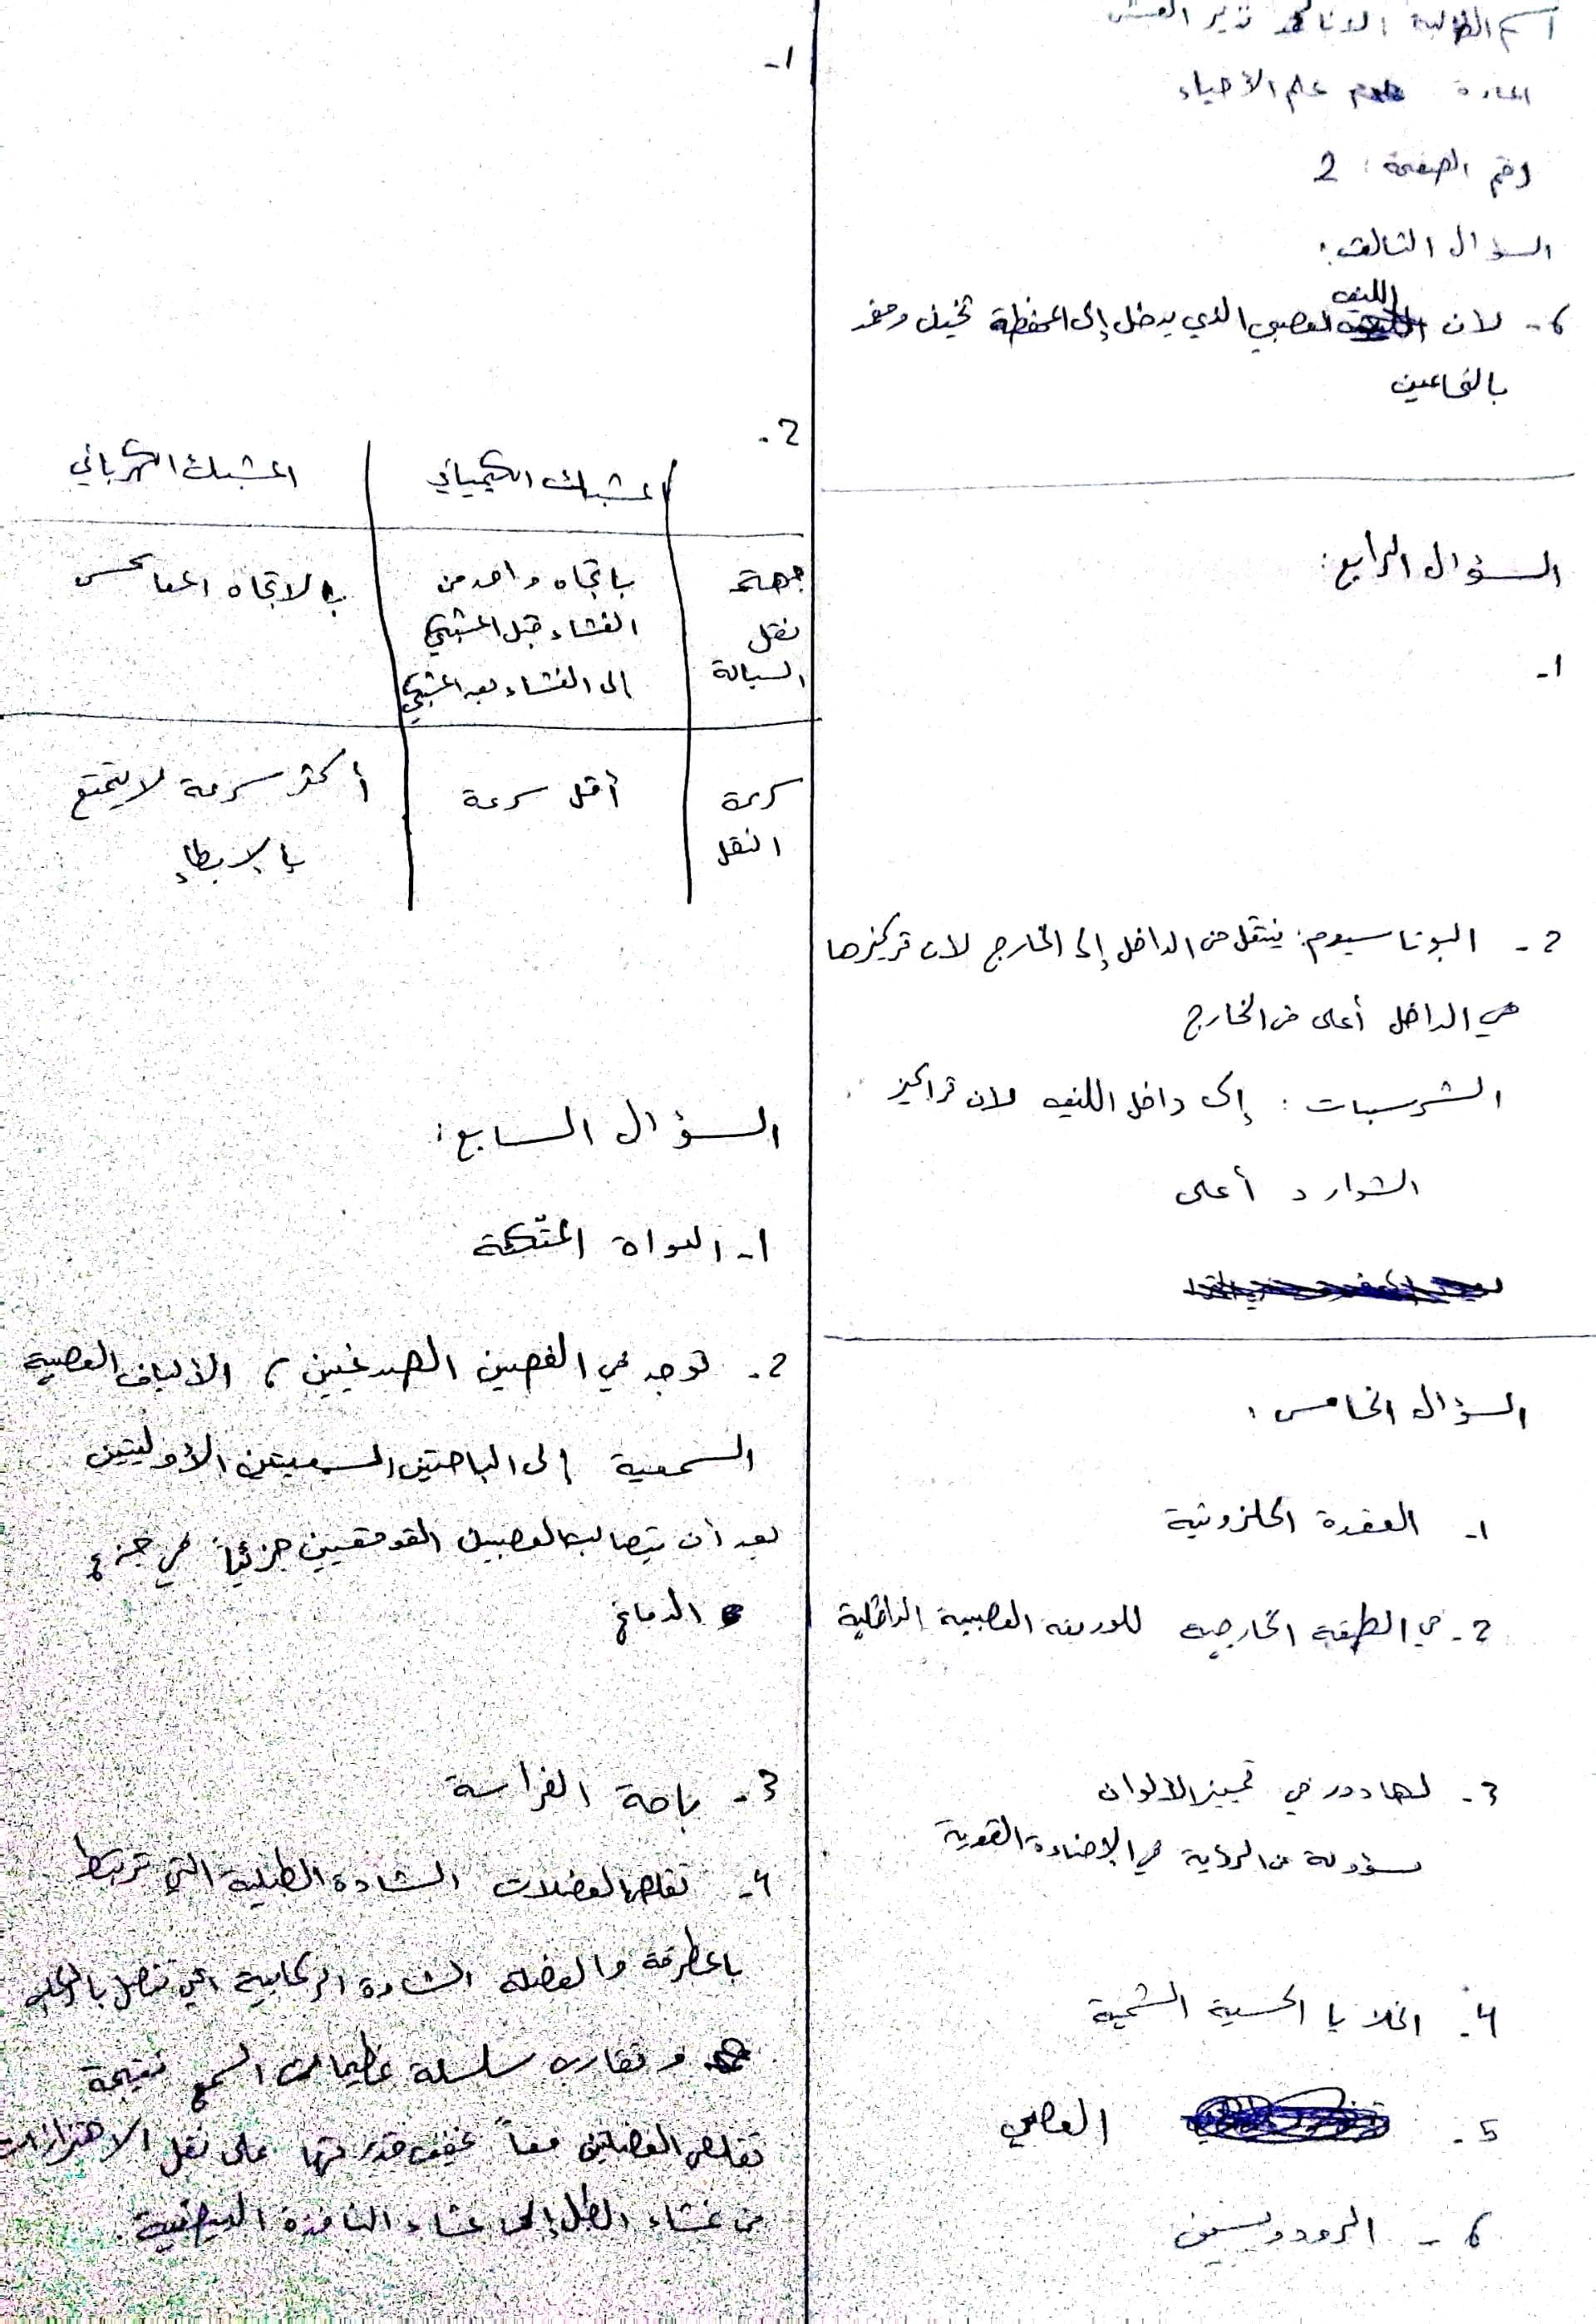 اسم الطالبة: نذير
المادة علم الأحياء
رقم الصفحة: 2
السؤال الثالث:
6- لان الليف العصبي الذي يدخل إلى المحفظة ثخين ومغمد
بالنخاعين
السؤال الرابع:
1-
2- البوتاسيوم: ينتقل من الداخل إلى الخارج لان تركيزها
في الداخل أعلى من الخارج
الشرسبات: إلى داخل الليف لان تراكيز
الشوارد أعلى
السؤال الخامس:
1- العقدة الحلزونية
2- في الطبقة الخارجية للوريقة العصبية الداخلية
3- لها دور في تمييز الالوان
مسؤولة عن الرؤية في الإضاءة القوية
4- الخلايا الحسية الشمية
5- العصي
6- الرودوبسين
1-
2-
المشبك الكيميائي المشبك الكهربائي
جهة نقل السيالة باتجاه واحد من الغشاء قبل المشبكي إلى الغشاء بعد المشبكي بالاتجاه المعاكس
سرعة النقل أقل سرعة أكثر سرعة لا يتمتع بالإبطاء
السؤال السابع:
1- النواة المتكئة
2- توجد في الفصين الصدغيين، الألياف العصبية
السمعية إلى الباحتين السمعيتين الأوليتين
بعد أن يتصالب العصبين القوقعيين جزئياً في جذع
الدماغ
3- باحة الفراسة
4- تقلص العضلات الشادة الطبلية التي ترتبط
بالمطرقة والعضلة الشادة الركابية التي تتصل بالركاب
وتقارب سلسلة عظيمات السمع نتيجة
تقلص العضلتين معاً يخفف قدرتها على نقل الاهتزازات
من غشاء الطبل إلى غشاء النافذة البيضية.